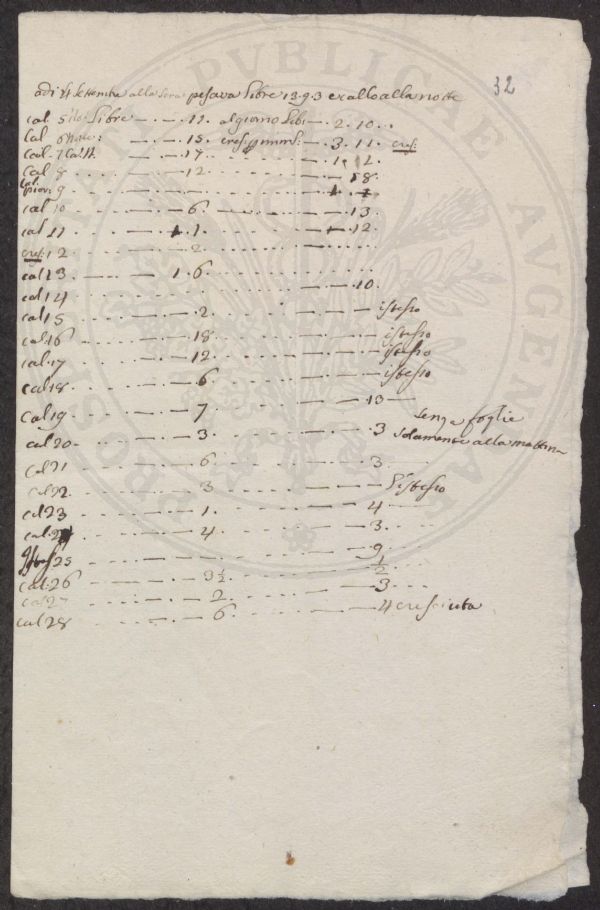 32
adi 4 settembre alla sera pesava libre 13.9.3 e calò alla notte
cal. 5 libre 11. al giorno 2. 10.
cal 6 15. 3. 11. cres:
cal. 7 17 1. 12.
cal 8 12 18.
9
cal 10 6. 13.
cal 11 1. 12.
cres: 12 2.
cal 13. 1. 6
cal 14 10.
cal 15 2. istesso
cal 16 18. istesso
cal. 17 12. istesso
cal 18. 6. istesso
cal 19 7 13
cal 20 3. 3 senza foglie
solamente alla mattina
cal 21 6 3
cal 22. 3 l'istesso
cal 23 1. 4
cal. 4. 3.
25 9
cal. 26 3½ ½
cal 27 2. 3
cal 28 6. 4 cresciuta
PVBLICAE AVGENTAE